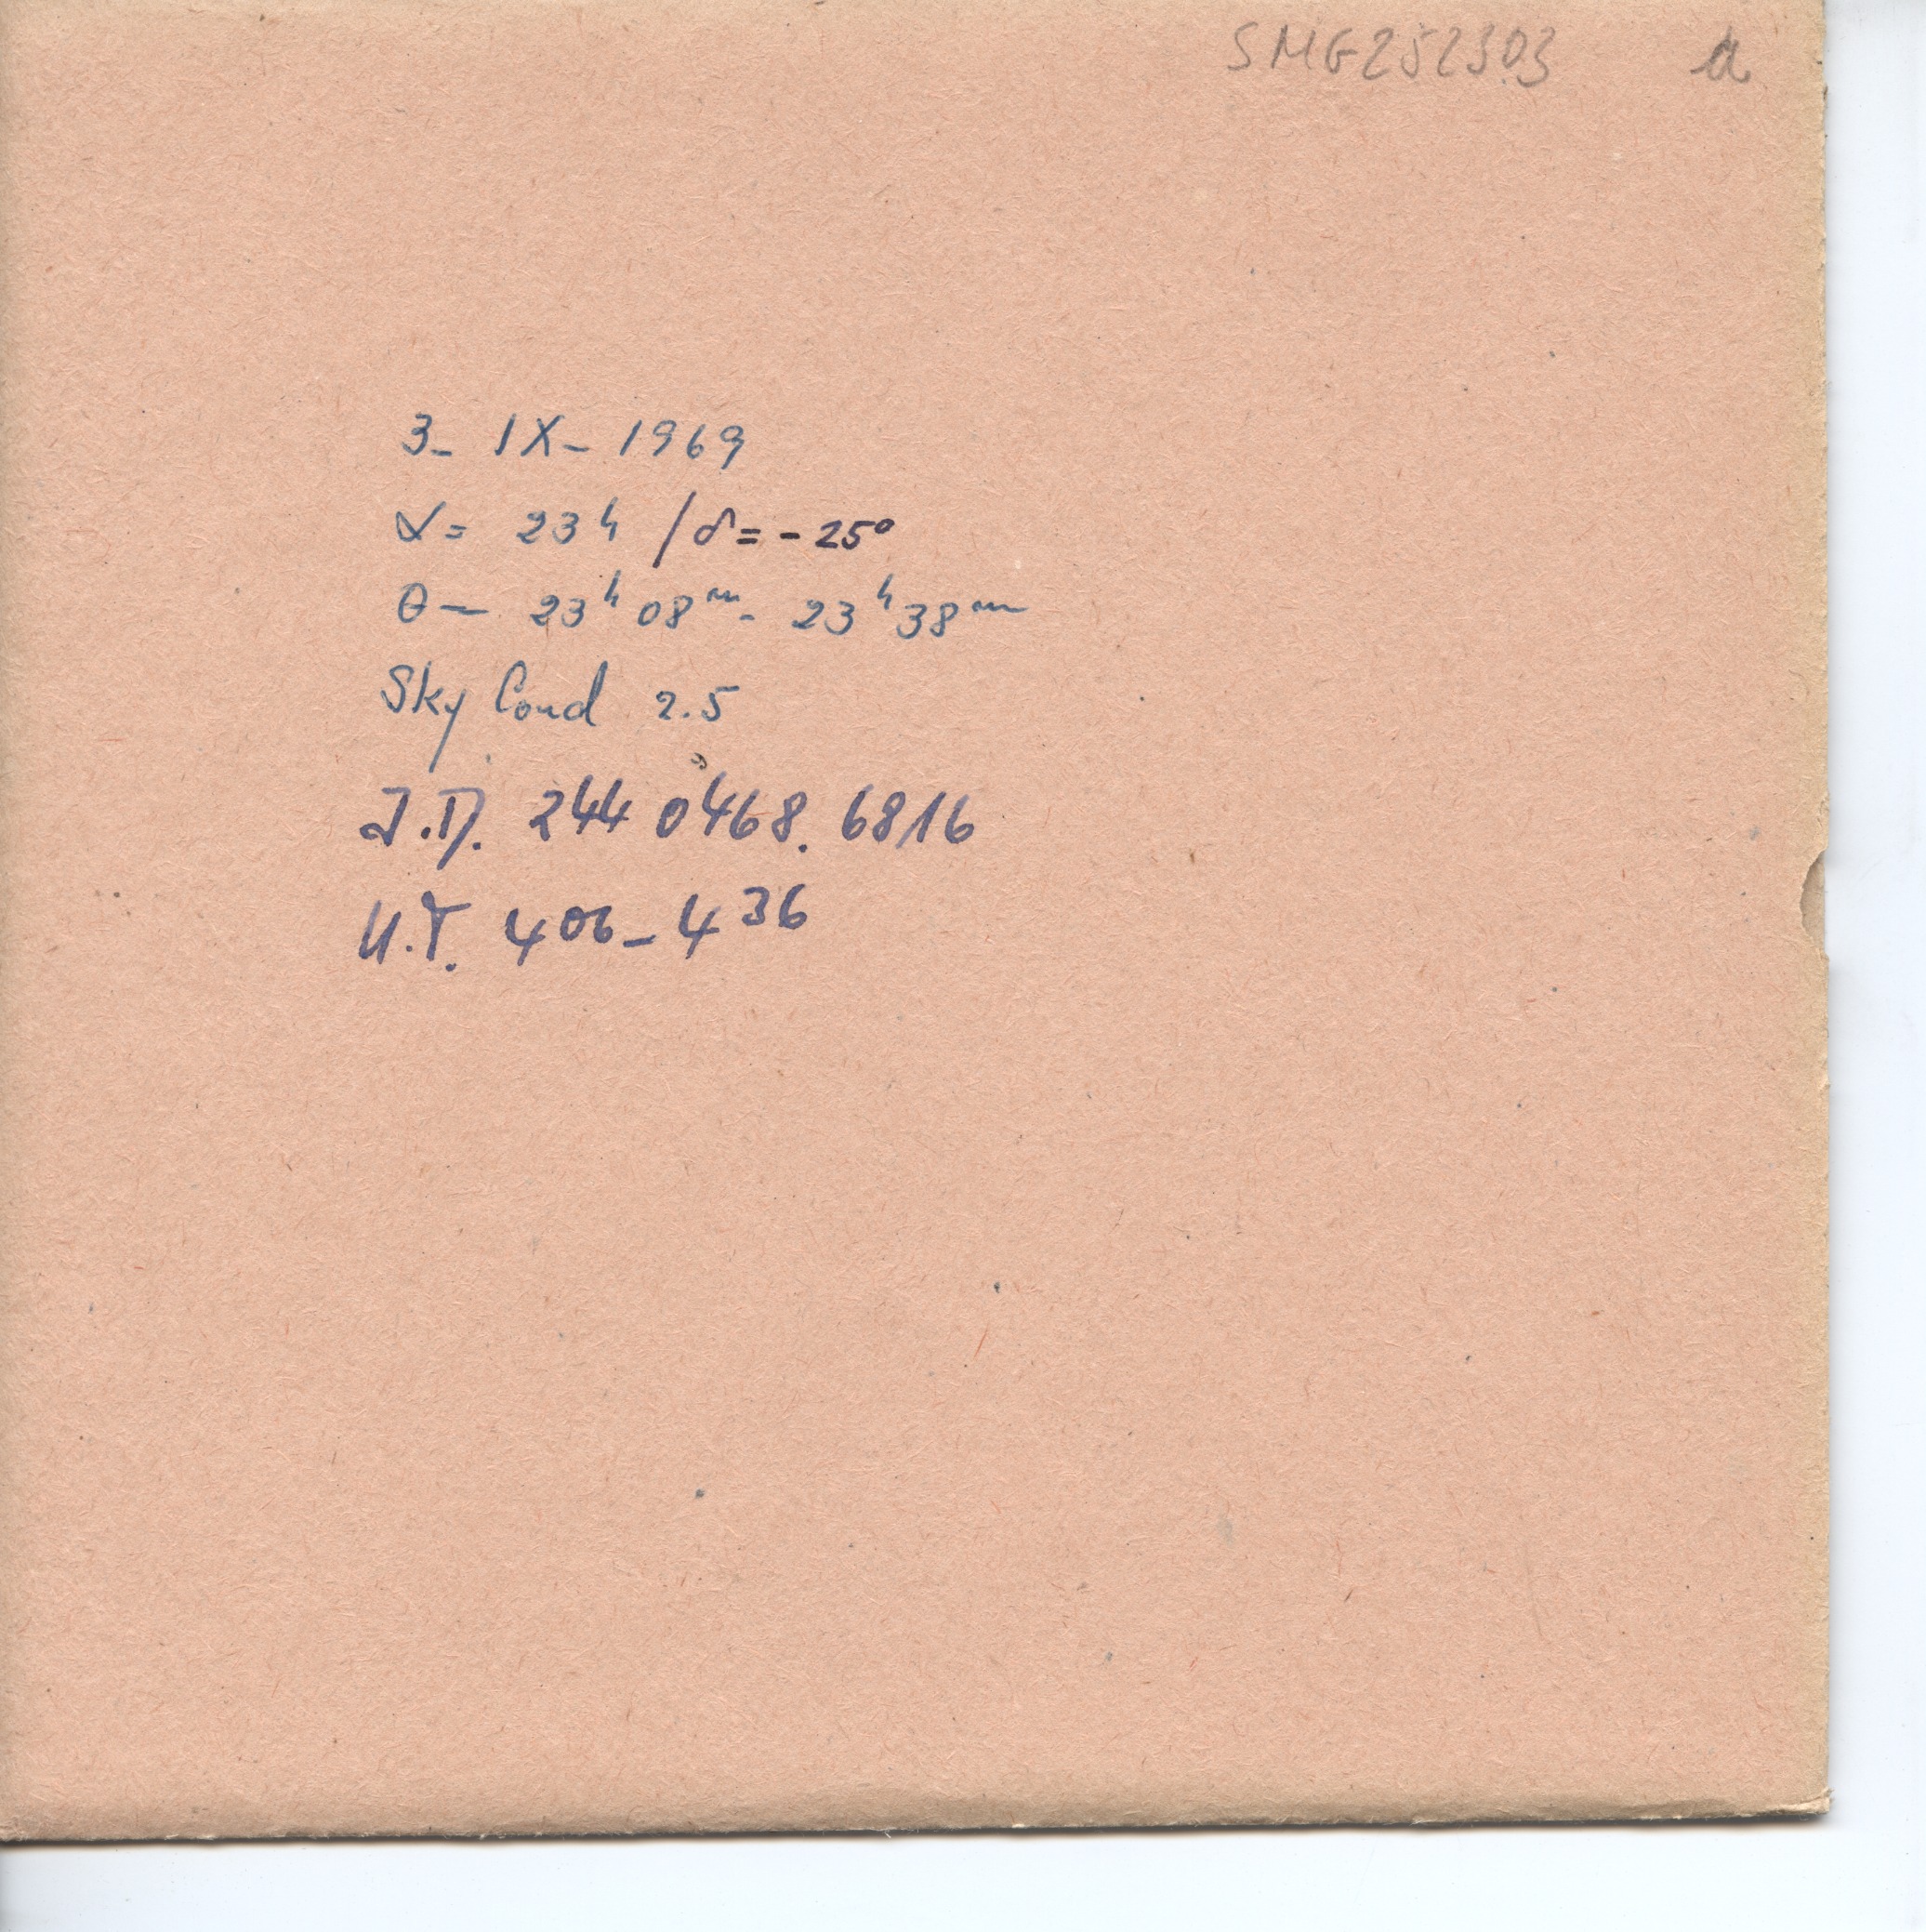 SMG252303 a
3- IX- 1969
α= 23h /δ=-25°
θ— 23h 08m- 23h 38m
Sky Cond 2.5
J.D. 244 0468. 6816
U.T. 4 06 - 4 36